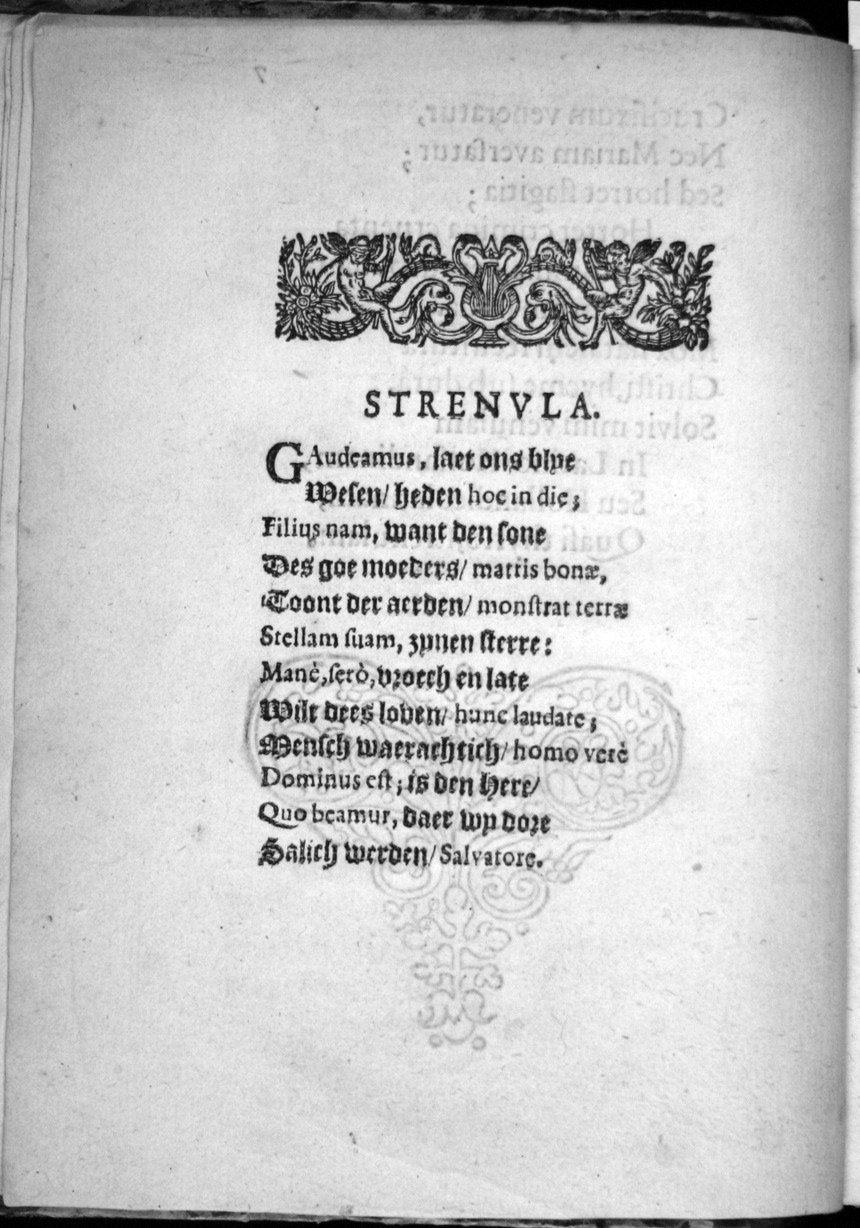 STRENVLA.
GAudeamus, laet ons blye
Wesen/ heden hoc in die;
Filius nam, want den sone
Des goe moeders/ matris bonæ,
Toont der aerden/ monstrat terræ
Stellam suam, zynen sterre:
Manè, serò, vroech en late
Wilt dees loven/ hunc laudate;
Mensch waerachtich/ homo verè
Dominus est; is den Here/
Quo beamur, daer wy dore
Salich werden/ Salvatore.